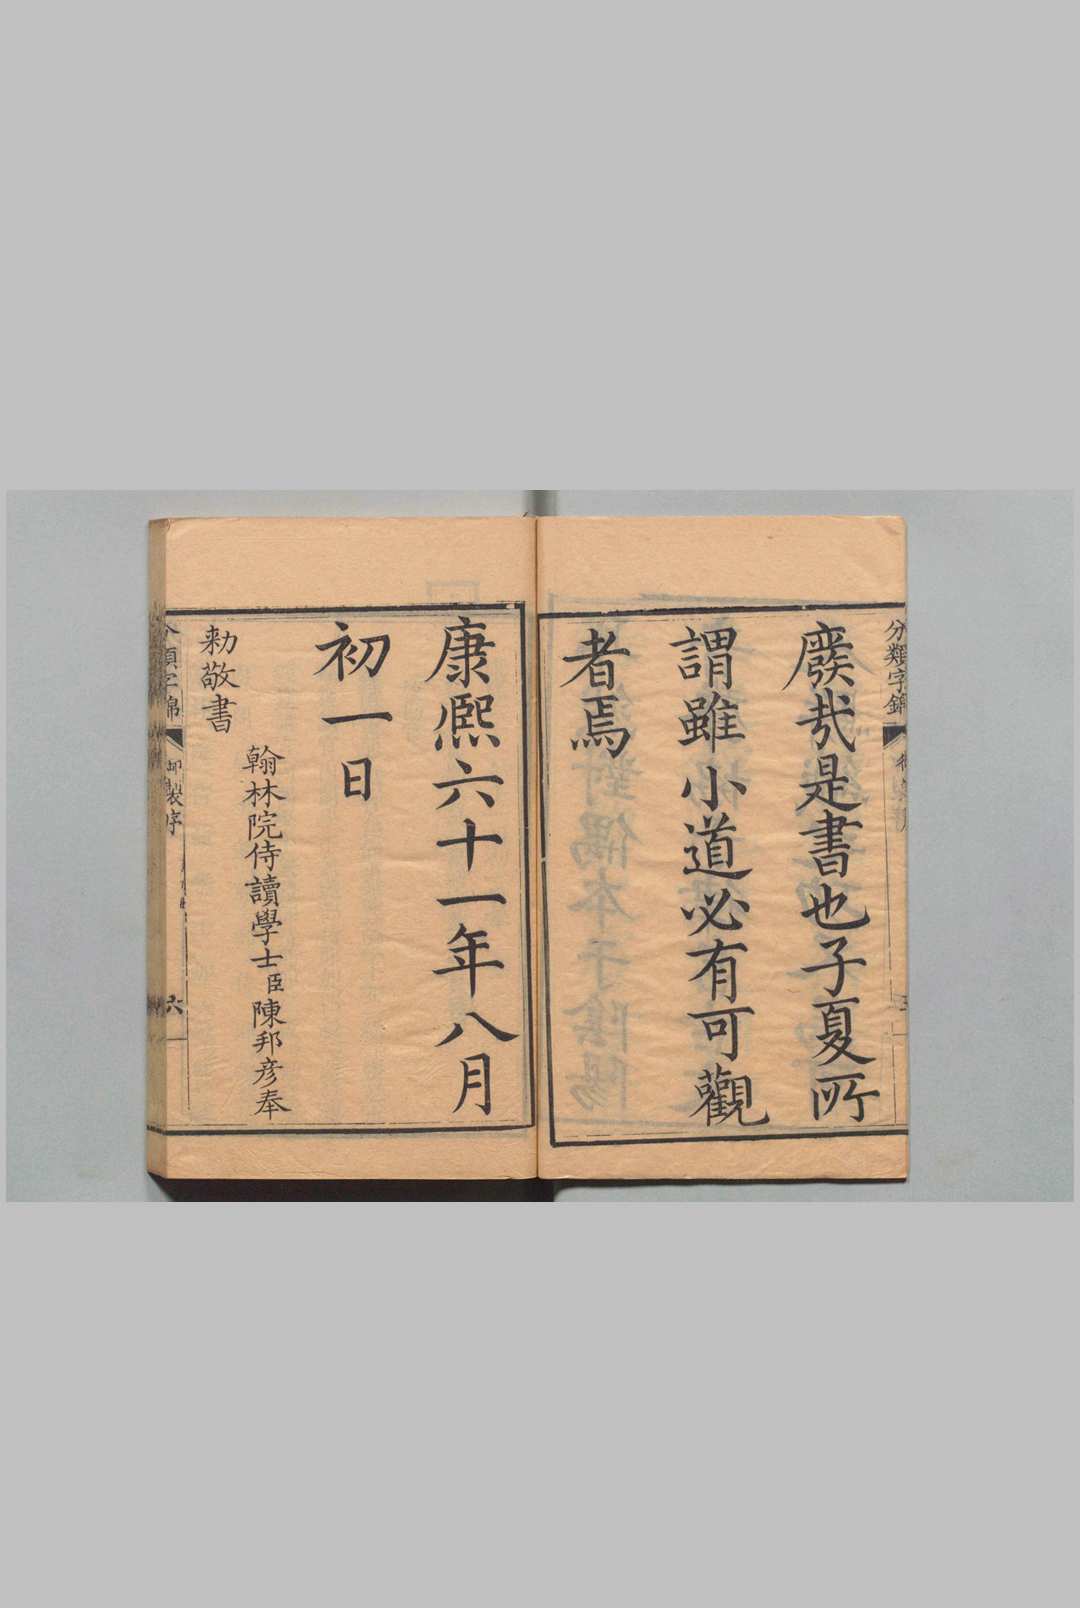 分類字錦
廢哉是書也子夏所
謂雖小道必有可觀
者焉
康熙六十一年八月
初一日
翰林院侍讀學士臣陳邦彥奉
勅敬書
分類字錦 御製序 六